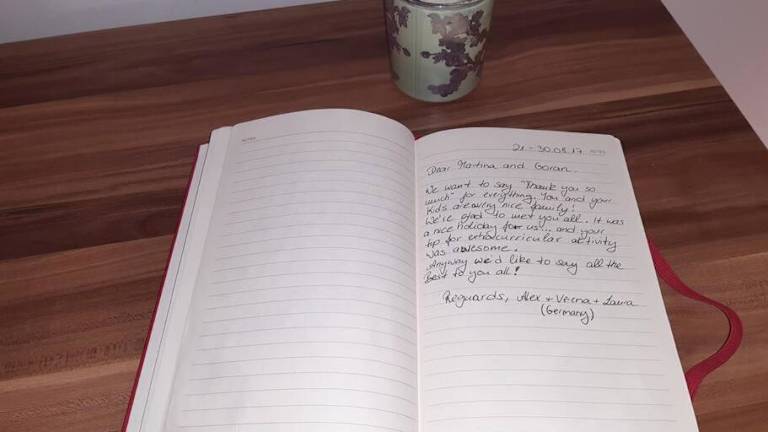 21 - 30.08.17
Dear Martina and Goran.
We want to say "Thank you so
much" for everything. You and your
kids are a very nice family!
We're glad to met you all. It was
a nice holiday for us... and your
tip for extracurricular activity
was awesome.
Anyway we'd like to say all the
best to you all!
Reguards, Alex + Verna + Laura
(Germany)